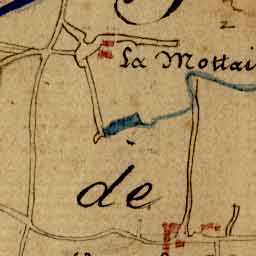 La Mottai
de